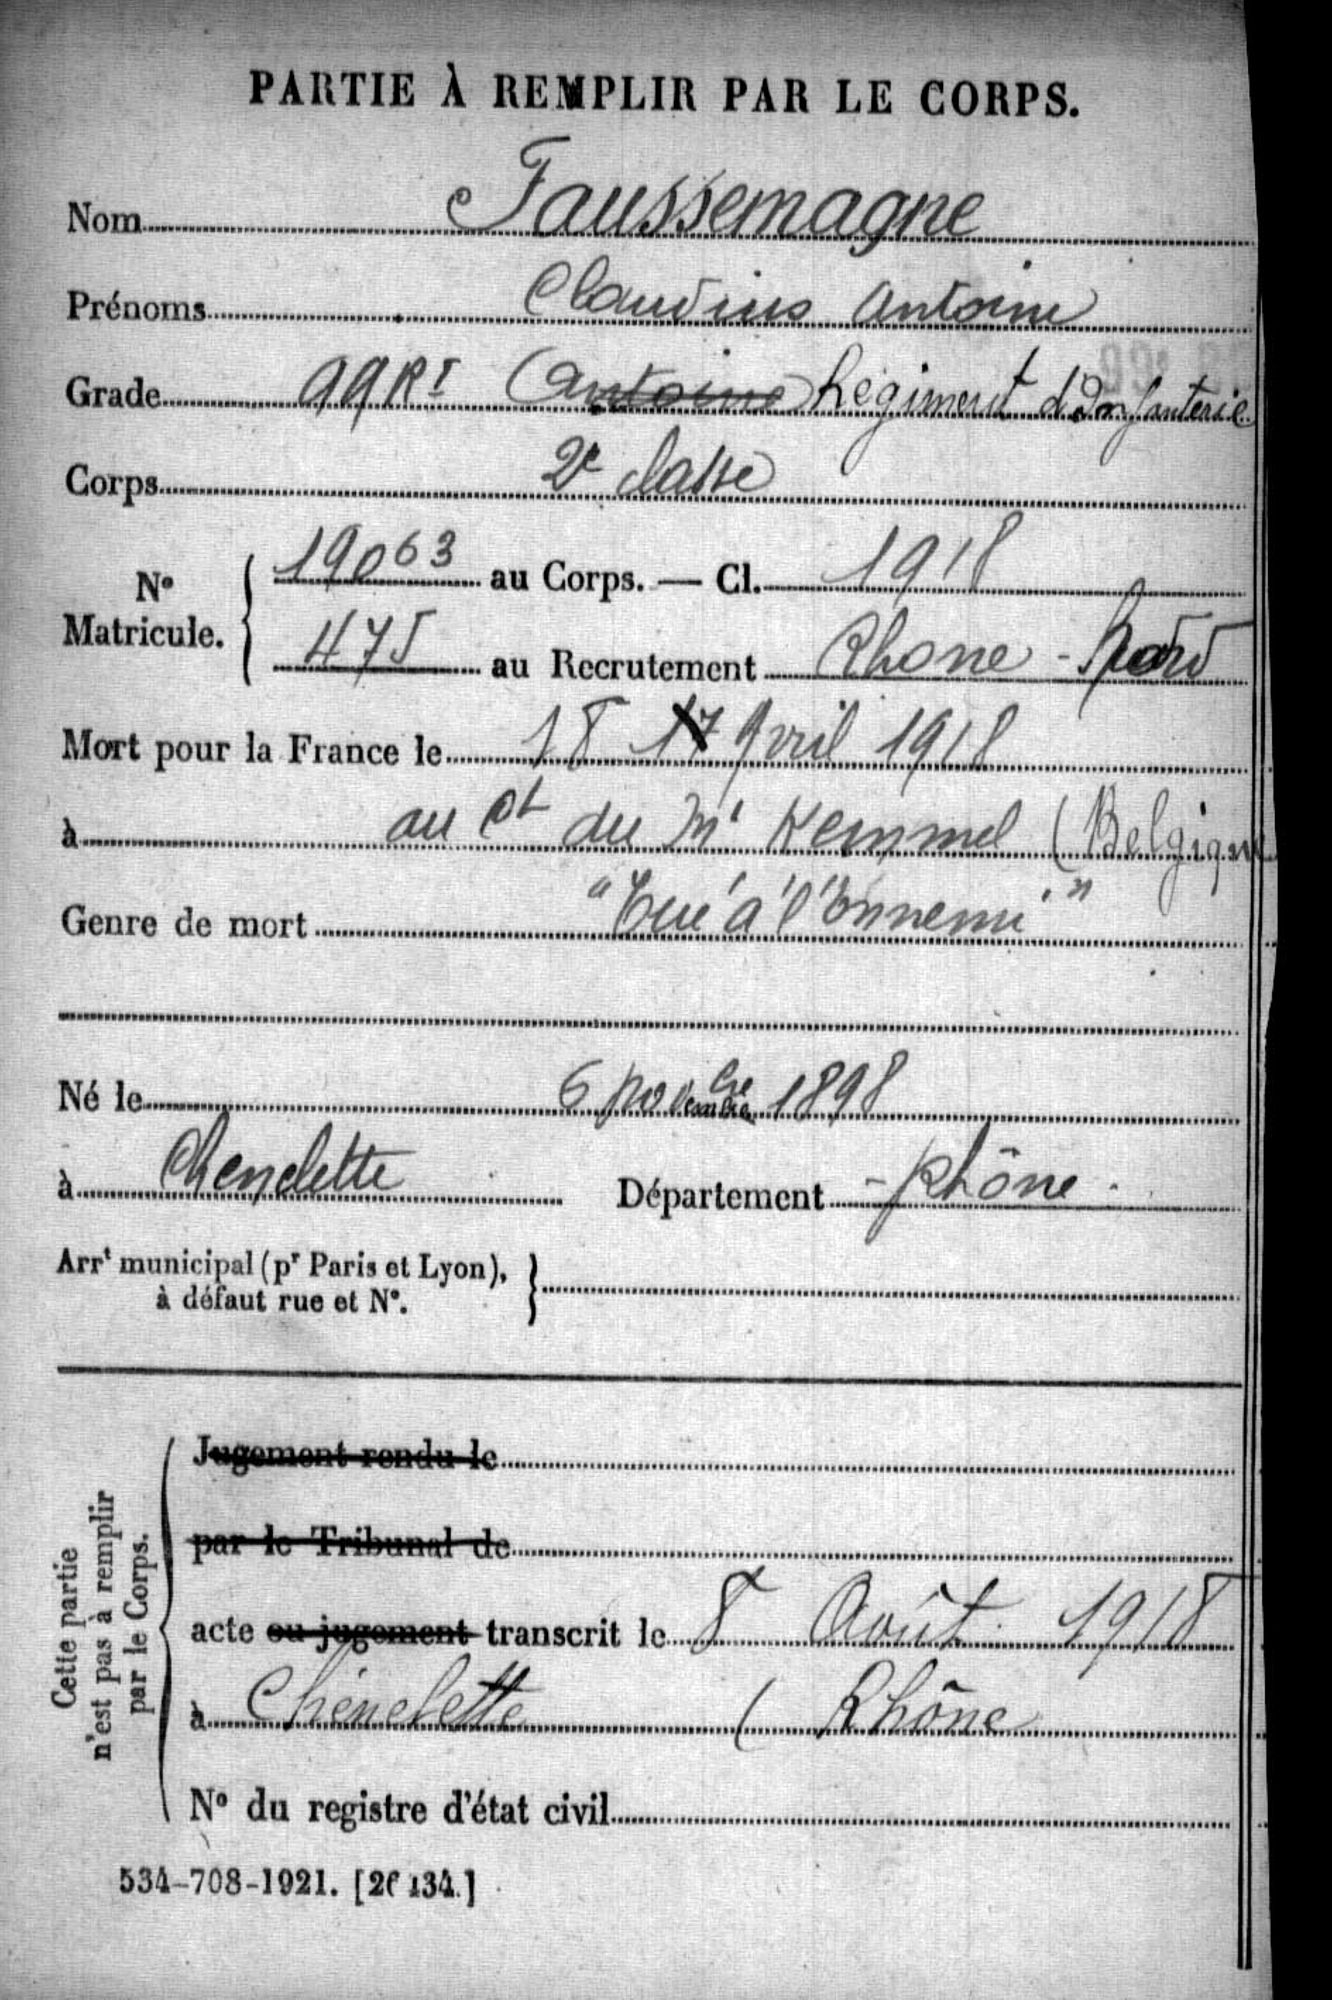 PARTIE À REMPLIR PAR LE CORPS.
Nom Faussemagne
Prénoms Claudius Antoine
Grade 99 RI Antoine Régiment d'Infanterie
Corps 2e classe
No Matricule. 19063 au Corps. — Cl. 1918
475 au Recrutement Rhone - Nord
Mort pour la France le 18 17 Avril 1918
à au Ct du Mt Kemmel (Belgique
Genre de mort "Tué à l'Ennemi"
Né le 6 Novembre 1898
à Chenelette Département - Rhône -
Arrt municipal (pr Paris et Lyon),
à défaut rue et No.
Cette partie
n'est pas à remplir
par le Corps.
Jugement rendu le
par le Tribunal de
acte ou jugement transcrit le 8 Août 1918
à Chénelette ( Rhône
No du registre d'état civil
534-708-1921. [26134.]